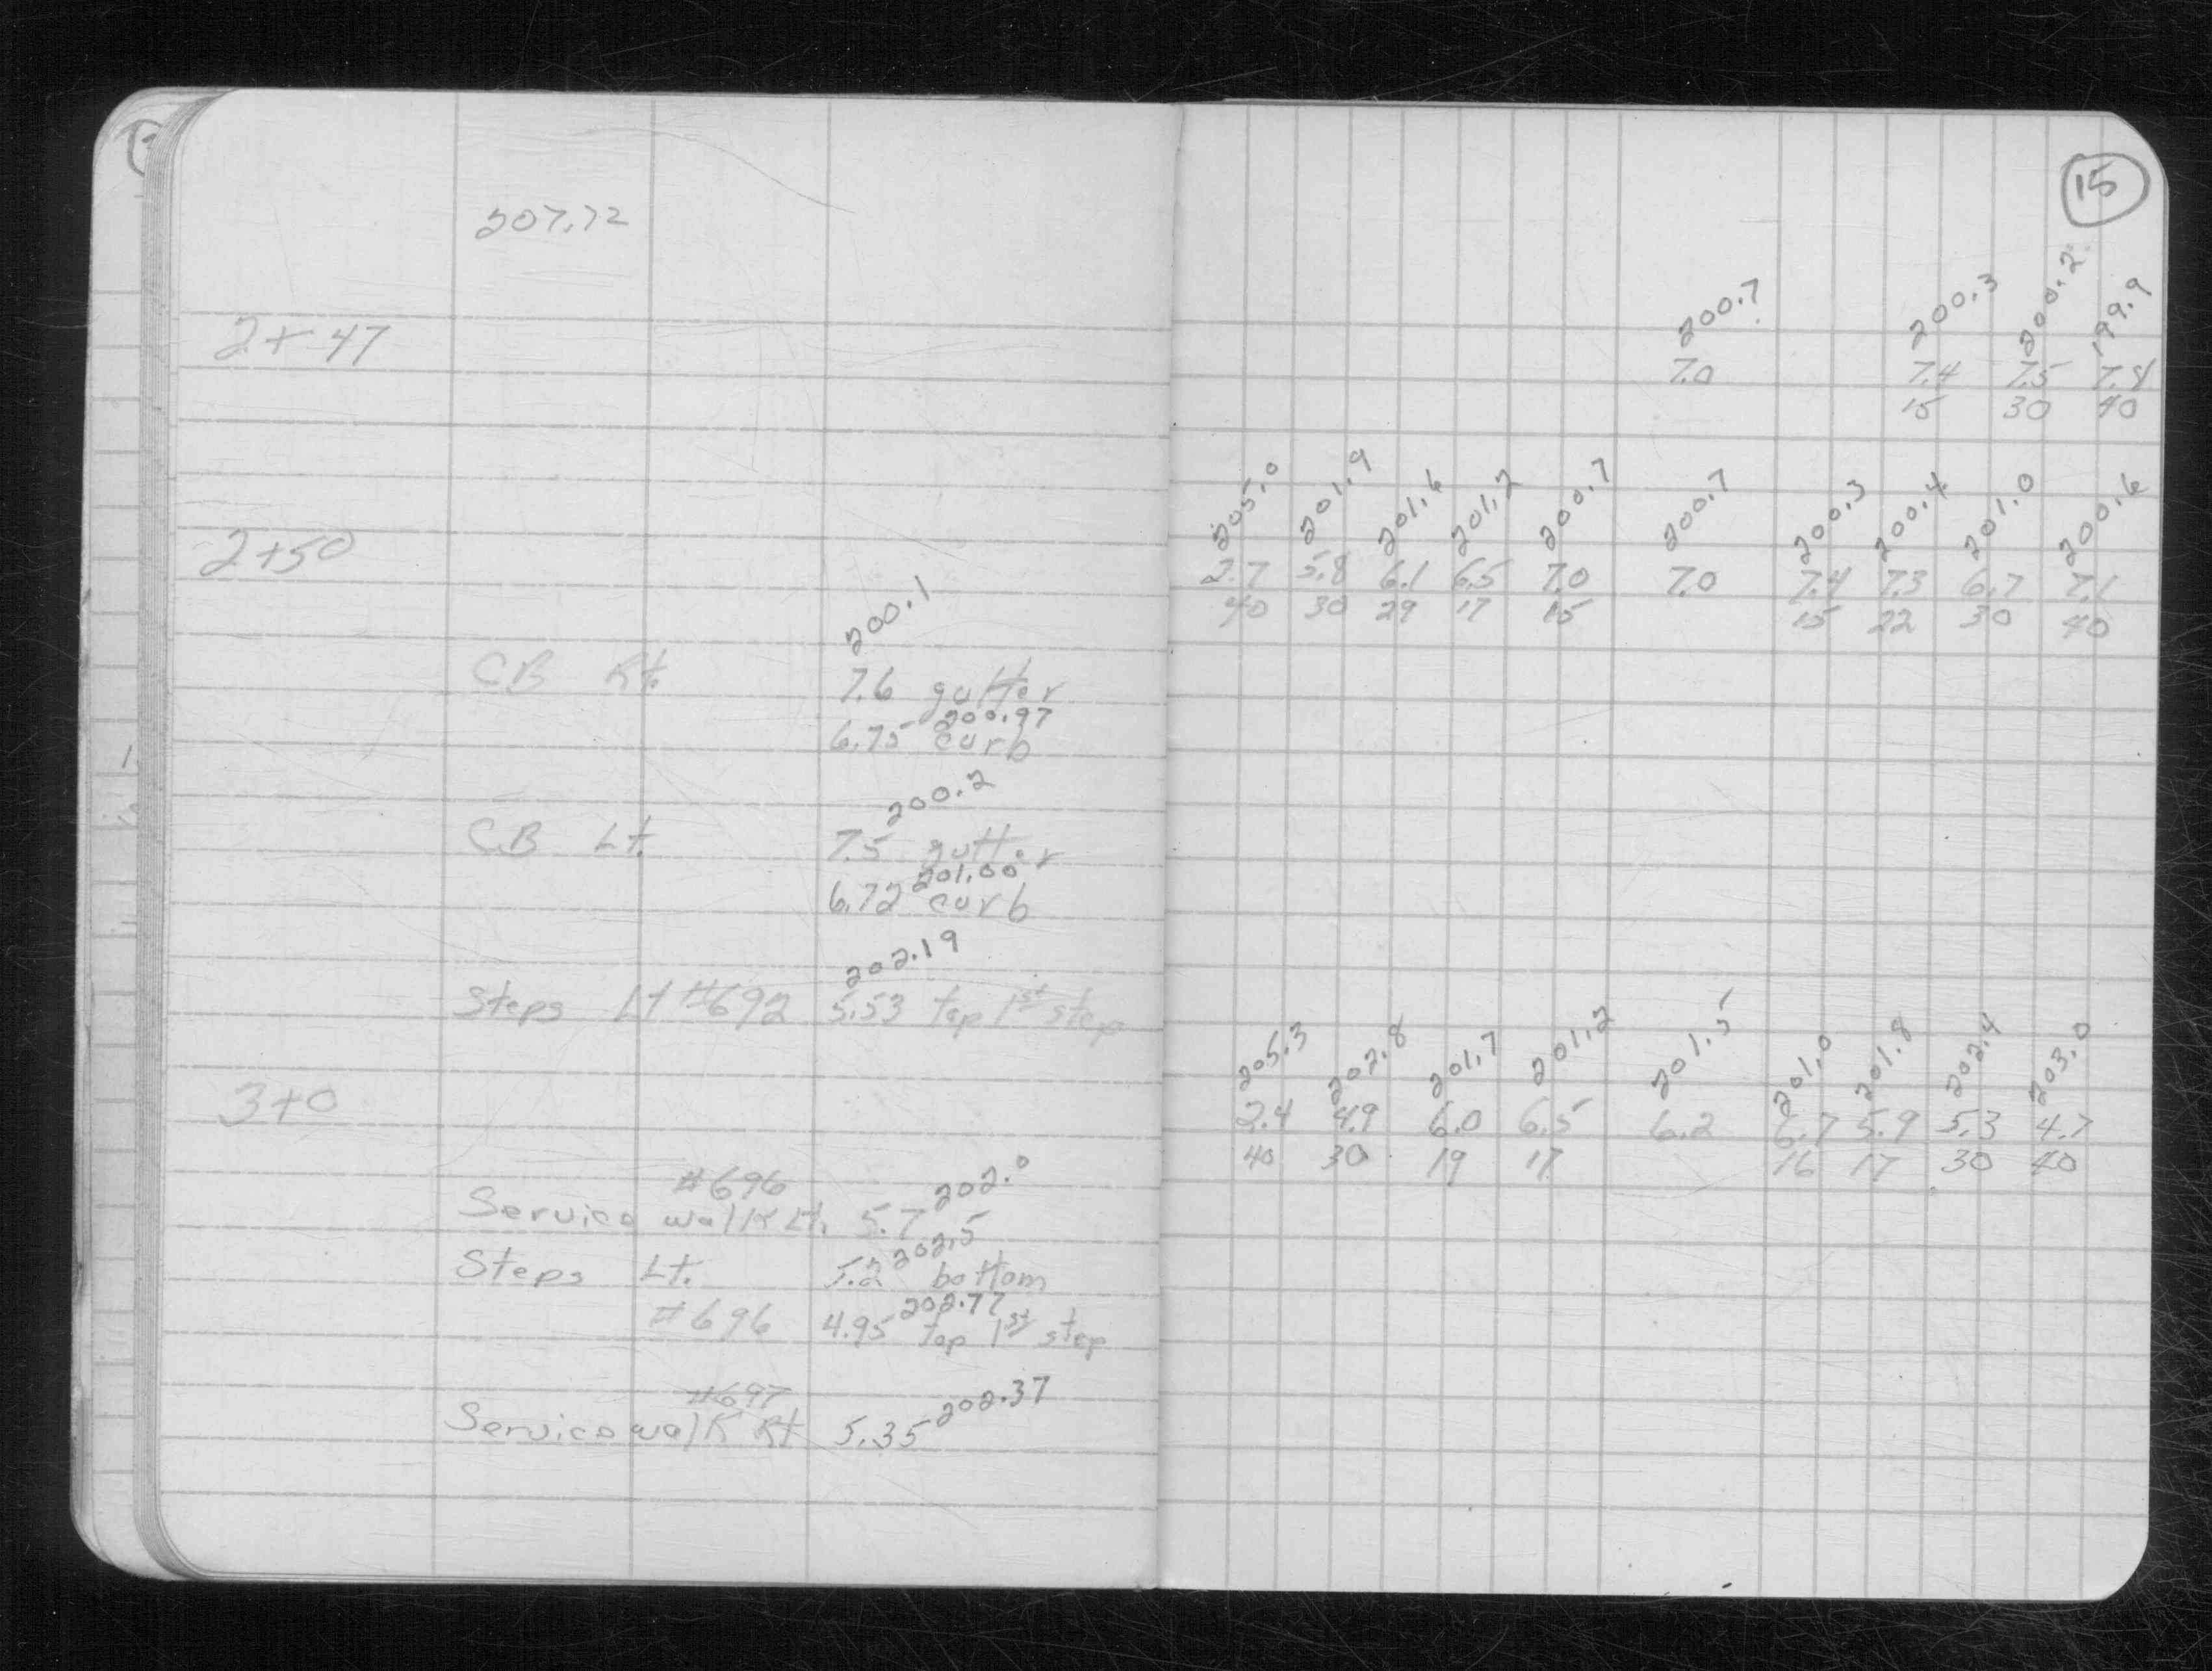 15
207.72
200.7 200.3 200.2 199.9
2+47
7.0 7.4 7.5 7.8
15 30 40
205.0 201.9 201.6 201.2 200.7 200.7 200.3 200.4 201.0 200.6
2+50
2.7 5.8 6.1 6.5 7.0 7.0 7.4 7.3 6.7 7.1
40 30 29 17 15 15 22 30 40
200.1
CB Rt. 7.6 gutter
200.97
6.75 curb
200.2
CB Lt. 7.5 gutter
201.00
6.72 curb
202.19
Steps Lt #692 5.53 top 1st step
205.3 202.8 201.7 201.2 201.5 201.0 201.8 202.4 203.0
3+0
2.4 4.9 6.0 6.5 6.2 6.7 5.9 5.3 4.7
40 30 19 17 16 17 30 40
#696 202.0
Service walk Lt. 5.7
202.5
Steps Lt. 5.2 bottom
202.77
#696 4.95 top 1st step
#697 202.37
Service walk Rt 5.35